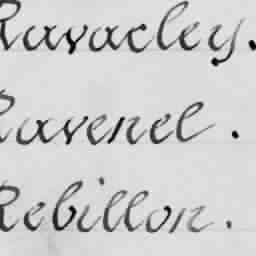 Ravacley.
Ravenel.
Rebillon.